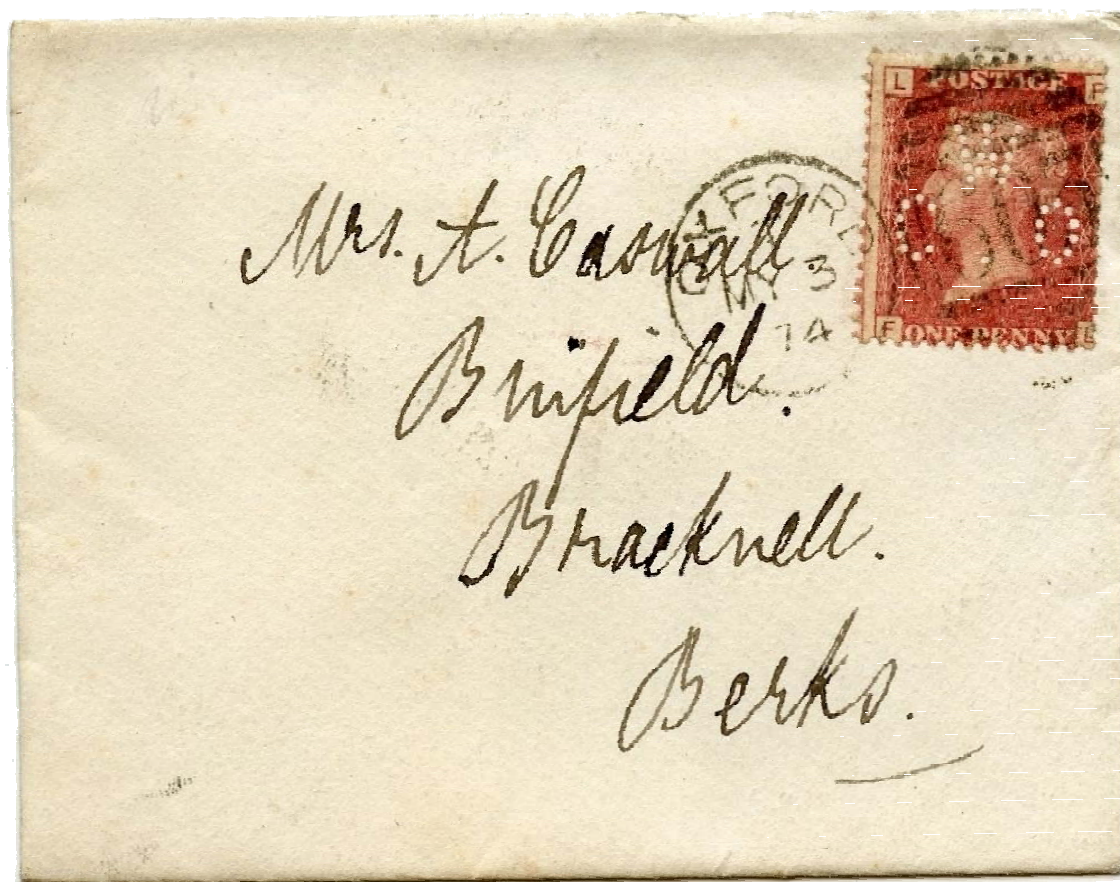 L POSTAGE F
C W O
F ONE PENNY L
OXFORD
MY 3
74
Mrs. A. Caswall
Binfield.
Bracknell.
Berks.